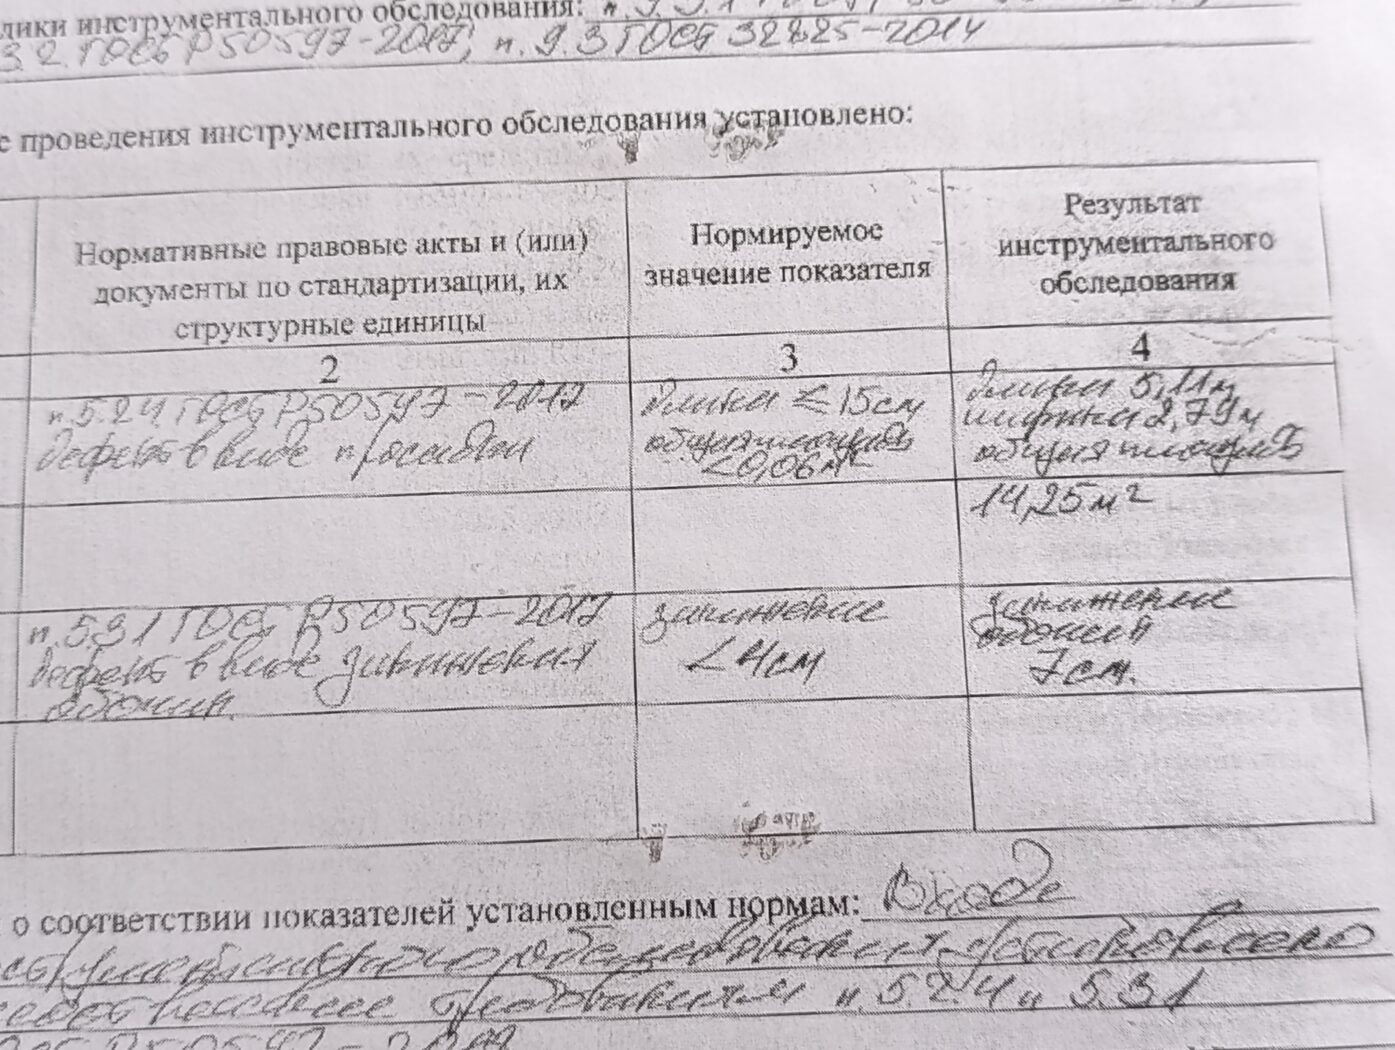 лики инструментального обследования:
3.2. ГОСТ Р 50597-2017, п. 9.3 ГОСТ 32825-2014
е проведения инструментального обследования установлено:
Нормативные правовые акты и (или)
документы по стандартизации, их
структурные единицы
Нормируемое
значение показателя
Результат
инструментального
обследования
2
3
4
п. 5.2.4 ГОСТ Р 50597-2017
дефект в виде просадки
длина ≤ 15 см
общая площадь
< 0,06 м²
длина 5,11 м
ширина 2,79 м
общая площадь
14,25 м²
п. 5.3.1 ГОСТ Р 50597-2017
дефект в виде занижения
обочины.
занижение
< 4 см
занижение
обочины
7 см.
о соответствии показателей установленным нормам: В ходе
инструментального обследования установлено
несоответствие требованиям п. 5.2.4 и 5.3.1
ГОСТ Р 50597-2017